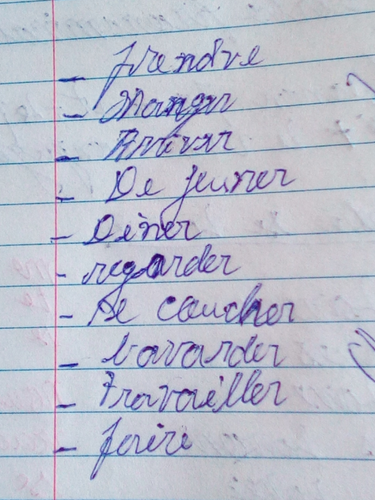 - prendre
- Manger
- Arriver
- De jeuner
- Dèner
- regarder
- Se coucher
- bavarder
- Travailler
- faire